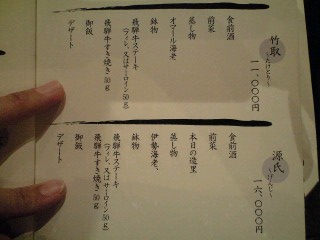 竹取
〜たけとり〜
一一、〇〇〇円
食前酒
前菜
蒸し物
オマール海老
鉢物
飛騨牛ステーキ
(フィレ、又はサーロイン50g)
飛騨牛すき焼き50g
御飯
デザート
源氏
〜げんじ〜
一六、〇〇〇円
食前酒
前菜
本日の造里
蒸し物
伊勢海老、
鉢物
飛騨牛ステーキ
(フィレ、又はサーロイン50g)
飛騨牛すき焼き50g
御飯
デザート